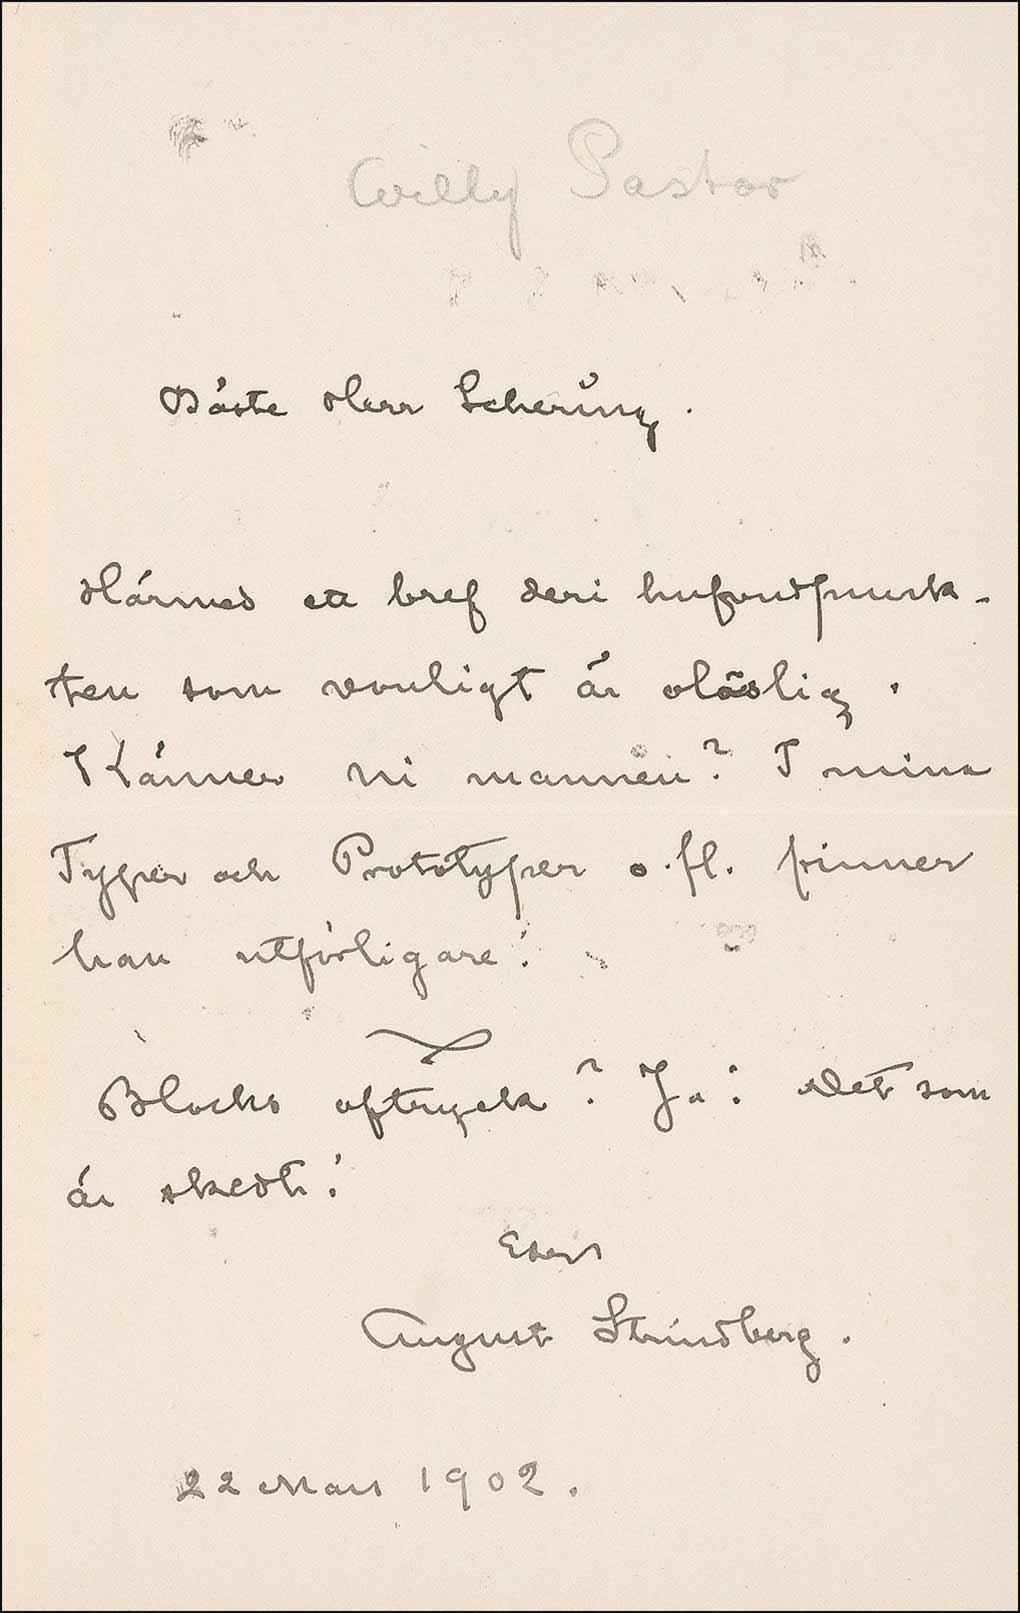 Willy Pastor
Bäste Herr Schering.
Härmed ett bref deri hufvudpunk-
ten som vanligt är oläslig.
Känner ni mannen? I mina
Typer och Prototyper o. fl. finner
han utförligare!
Blochs aftryck? Ja! Det som
är skedt!
Eder
August Strindberg.
22 Mars 1902.